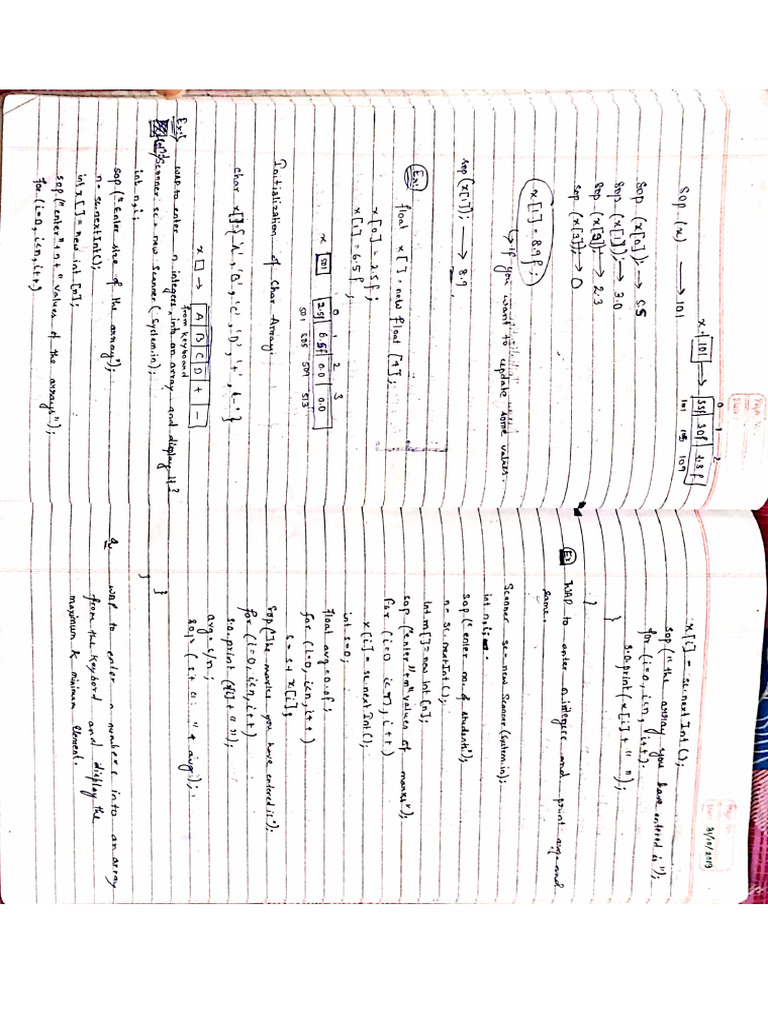 x [101] → 5.5f 3.0f 2.3f
0 1 2
101 105 109
Sop (x) → 101
Sop (x[0]); → 5.5
Sop (x[1]); → 3.0
Sop (x[2]); → 2.3
Sop (x[3]); → 0
x[1] = 8.9f;
↳ If you want to update some values.
Sop (x[1]); → 8.9
Ex:
float x[] = new float [4];
x[0] = 2.5f;
x[1] = 6.5f;
0 1 2 3
x 501 2.5f 6.5f 0.0 0.0
501 505 509 513
Initialization of Char Array:
char x[] = {'A', 'B', 'C', 'D', '+', '-'}
x → A B C D + -
Ex:- WAP to enter n integers, into an array and display it?
from keyboard
Scanner sc = new Scanner (System.in);
int n,i;
sop ("Enter size of the array");
n = sc.nextInt();
int x[] = new int [n];
sop ("enter"+n+" values of the arrays");
for (i=0, i<n, i++)
31/10/2019
x[i] = sc.nextInt();
sop ("the array you have entered is");
for (i=0, i<n, i++)
s.o.print (x[i]+" ");
}
}
Ex WAP to enter n integers and print avg and
same.
Scanner sc = new Scanner (System.in);
int n,i;
sop ("enter no. of students");
n = sc.nextInt();
int m[] = new int [n];
sop ("enter"+n+"values of marks");
for (i=0, i<n, i++)
x[i] = sc.nextInt();
int s=0;
float avg=0.0f;
for (i=0, i<n, i++)
s = s + x[i];
sop ("The marks you have entered is");
for (i=0, i<n, i++)
s.o.print (x[i]+" ");
avg = s/n;
s.o.p (s+ " + avg);
}
}
Q WAP to enter n numbers into an array
from the keybord and display the
maximum & minimum element.